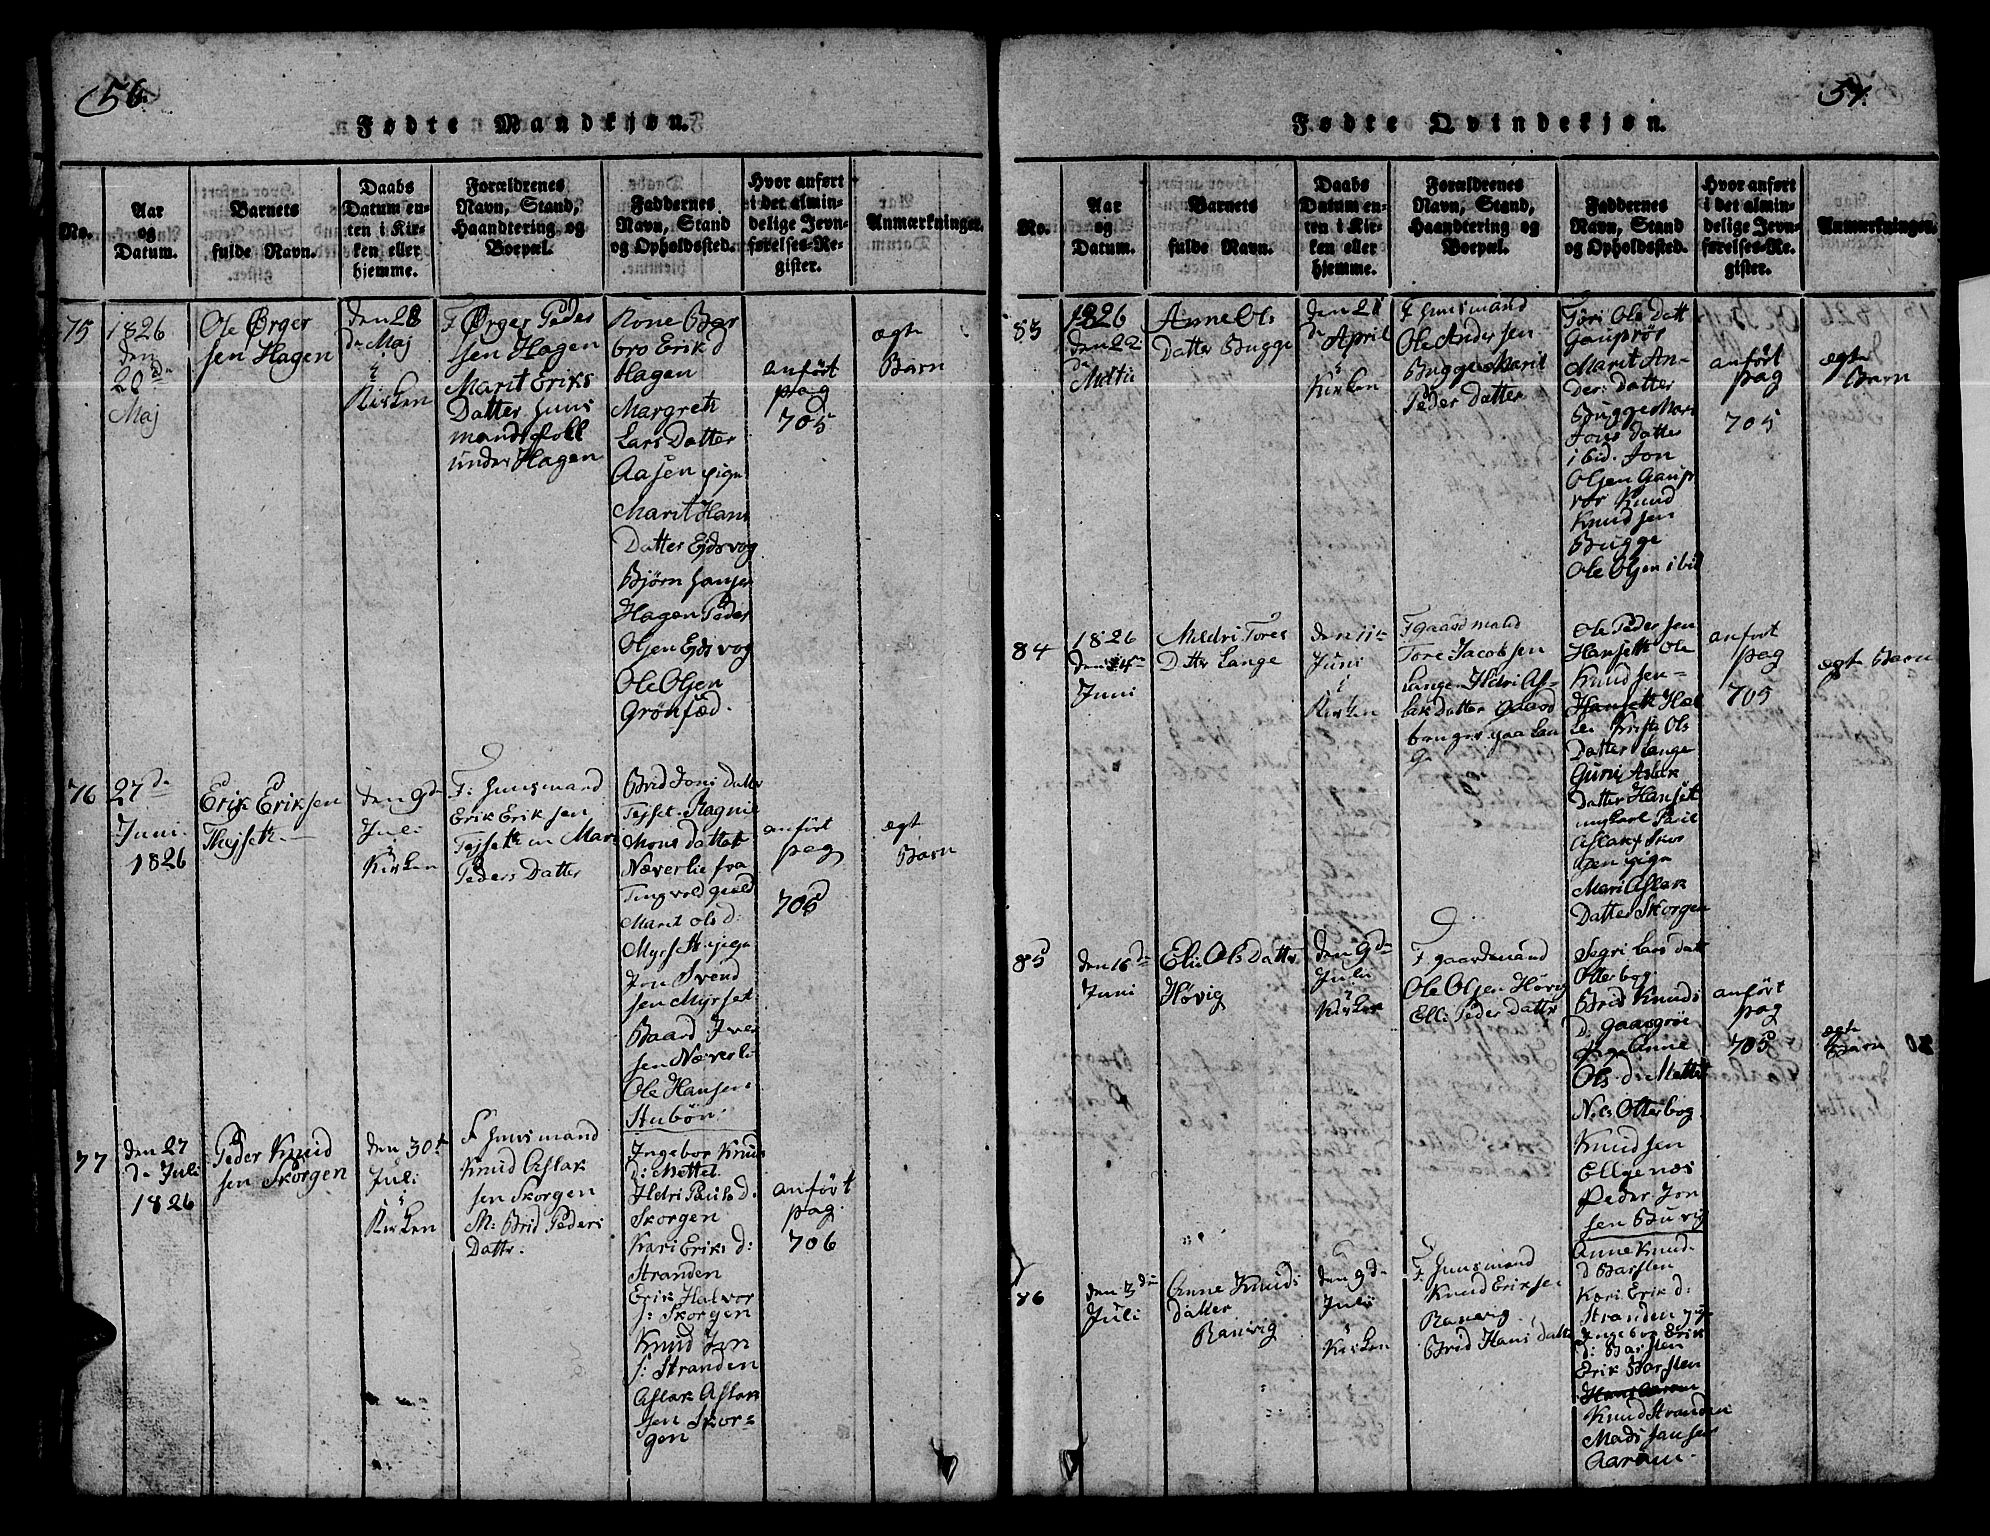 56.
Fødte Mandkjøn.
No.
Aar
og
Datum.
Barnets
fulde Navn.
Daabs
Datum en-
ten i Kir-
ken eller
hjemme.
Forældrenes
Navn, Stand,
Haandtering og
Boepæl.
Faddernes
Navn, Stand
og Opholdssted.
Hvor anført
i det almin-
delige Jevn-
førelses-Re-
gister.
Anmærkninger.
75
1826
den
20de
Maj
Ole Ørger
sen Hagen
den 28
de Maj
i
Kirken
F Ørger Peder
sen Hagen
Marit Eriks
Datter huus
mandsfolk
under Hagen
Rone Bar
bro Erik d
Hagen
Margreth
Lars Datter
Aasen pige
Marit Hans
Datter Ejdsvog
Bjørn Hansen
Hagen Peder
Olsen Ejdsvog
Ole Olsen
Grönfæd.
anført
pag
705
ægte
Barn
76
27de
Juni
1826
Erik Eriksen
Thejseth
den 9de
Juli
i
Kirken
F: huusmand
Erik Eriksen
Tejseth m Mari
Peders Datter
Brid Joni Datter
Tejset. Ragnie
Mons datter
Næverlie fra
Tingvold gield
Marit Ols d:
Myrseth pige
Jon Svend
sen Myrset
Baard Iver
sen Næverli
Ole Hansen
Stubön.
anført
pag
705
ægt
Barn
77
den 27
de Juli
1826
Peder Knud
sen Skorgen
den 30te
Juli
i
Kirken
F huusmand
Knud Aslak
sen Skorgen
M: Brid Peders
Datter.
Ingebor Knud
d: Mettet
Ildri Pauls d:
Skorgen
Kari Eriks d:
Stranden
Erik Halvor
s: Skorgen
Knud Jon
s: Stranden
Aslak Aslak
sen Skor=
gen
anført
pag.
706
57.
Fødte Qvindekjøn.
No.
Aar
og
Datum.
Barnets
fulde Navn.
Daabs
Datum en-
ten i Kir-
ken eller
hjemme.
Forældrenes
Navn, Stand,
Haandtering og
Boepæl.
Faddernes
Navn, Stand
og Opholdssted.
Hvor anført
i det almin-
delige Jevn-
førelses-Re-
gister.
Anmærkninger.
83
1826
den 22
de
Anne Ols
Datter Bugge
den 21
de April
i
Kirken
F huusmand
Ole Ander sen
Bugge Marit
Peder Datter
Töri Ole Datt
Gauprör
Marit An-
der: Datter
Bugge Mari
Jons Datter
ibid. Jon
Olsen Gaup
rör Knud
Knud sen
Bugge
Ole Olsen ibid
anført
pag
705
ægte
Barn
84
1826
den 14de
Juni
Mildri Tores
Datter Lange
den 11te
Juni
i
Kirken
F gaardmand
Tore Jacobsen
Lange. Ildri As-
lak Datter gaard
bruger paa Lan
ge
Ole Peder sen
Hanseth Ole
Knud sen-
Hanseth Hæl
Lei Krista Ols
Datter Lange
Guni Aslak
Datter Hanset
Aslak d Skor
gen pige
Mari Aslak
Datter Skorgen
anført
pag
705
ægte Barn
85
den 16de
Juni
Eli Ols Datter
Høvig
den 9de
Juli
i
Kirken
F gaardsmand
Ole Olsen Høvig
Elli Peder Datter
Segri Lars datt
Otterbog
Brid Knuds
d: gaasgröe
pige Anne
Ols d: Mettet
Nels Otterbog
Knud sen
Ellgenæs
Peder Jon
sen Buvig
anført
pag
705
ægte
Barn
86
den 3de
Juli
Anne Knuds
datter
Ranvig
den 9de
Juli
i
Kirken
F. huusmand
Knud Eriksen
Ranvig
Brid Hans datter
Anne Knud.
d Barsten
Kari Erik d:
Stranden pg:
Ingebor Erik
d: Barsten
Erik Barsten
Hans Aaram
Knud Stranden
Mads Hansen
Aaram.